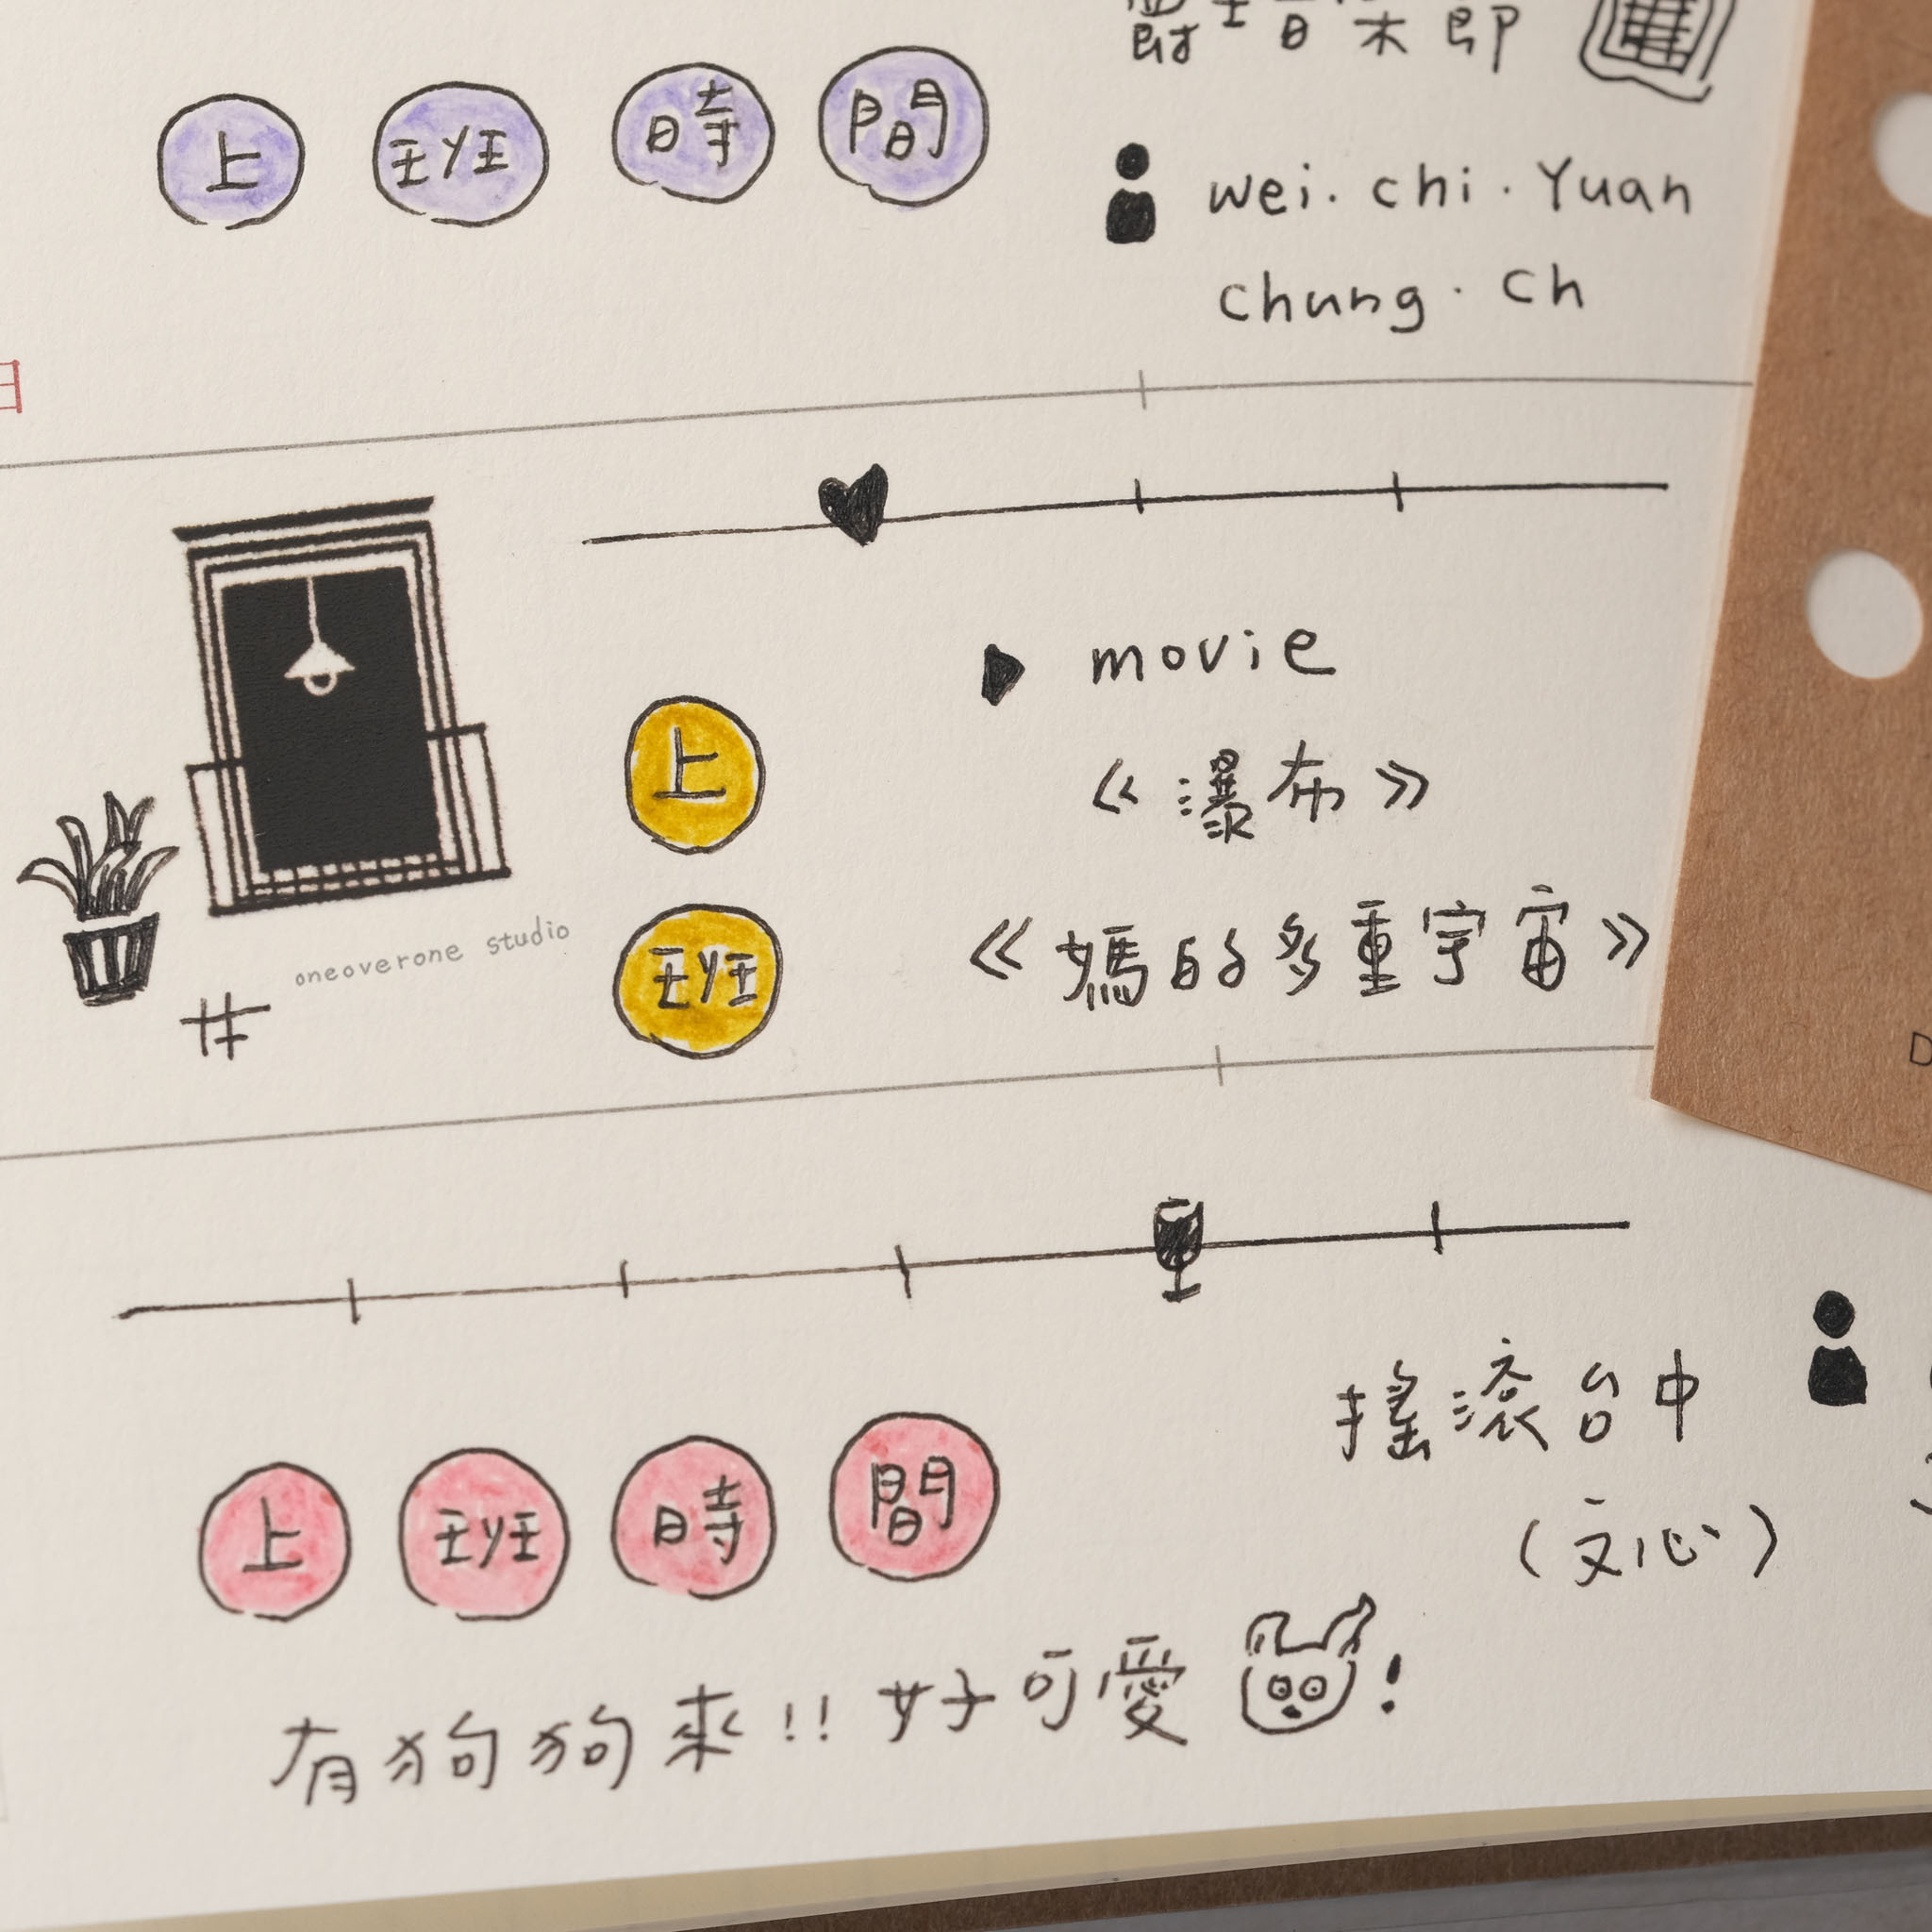 上班時間
wei. chi. Yuan
chung. ch
日
movie
《瀑布》
上班
《媽的多重宇宙》
oneoverone studio
搖滾台中
(文心)
上班時間
有狗狗來!! 好可愛!
D